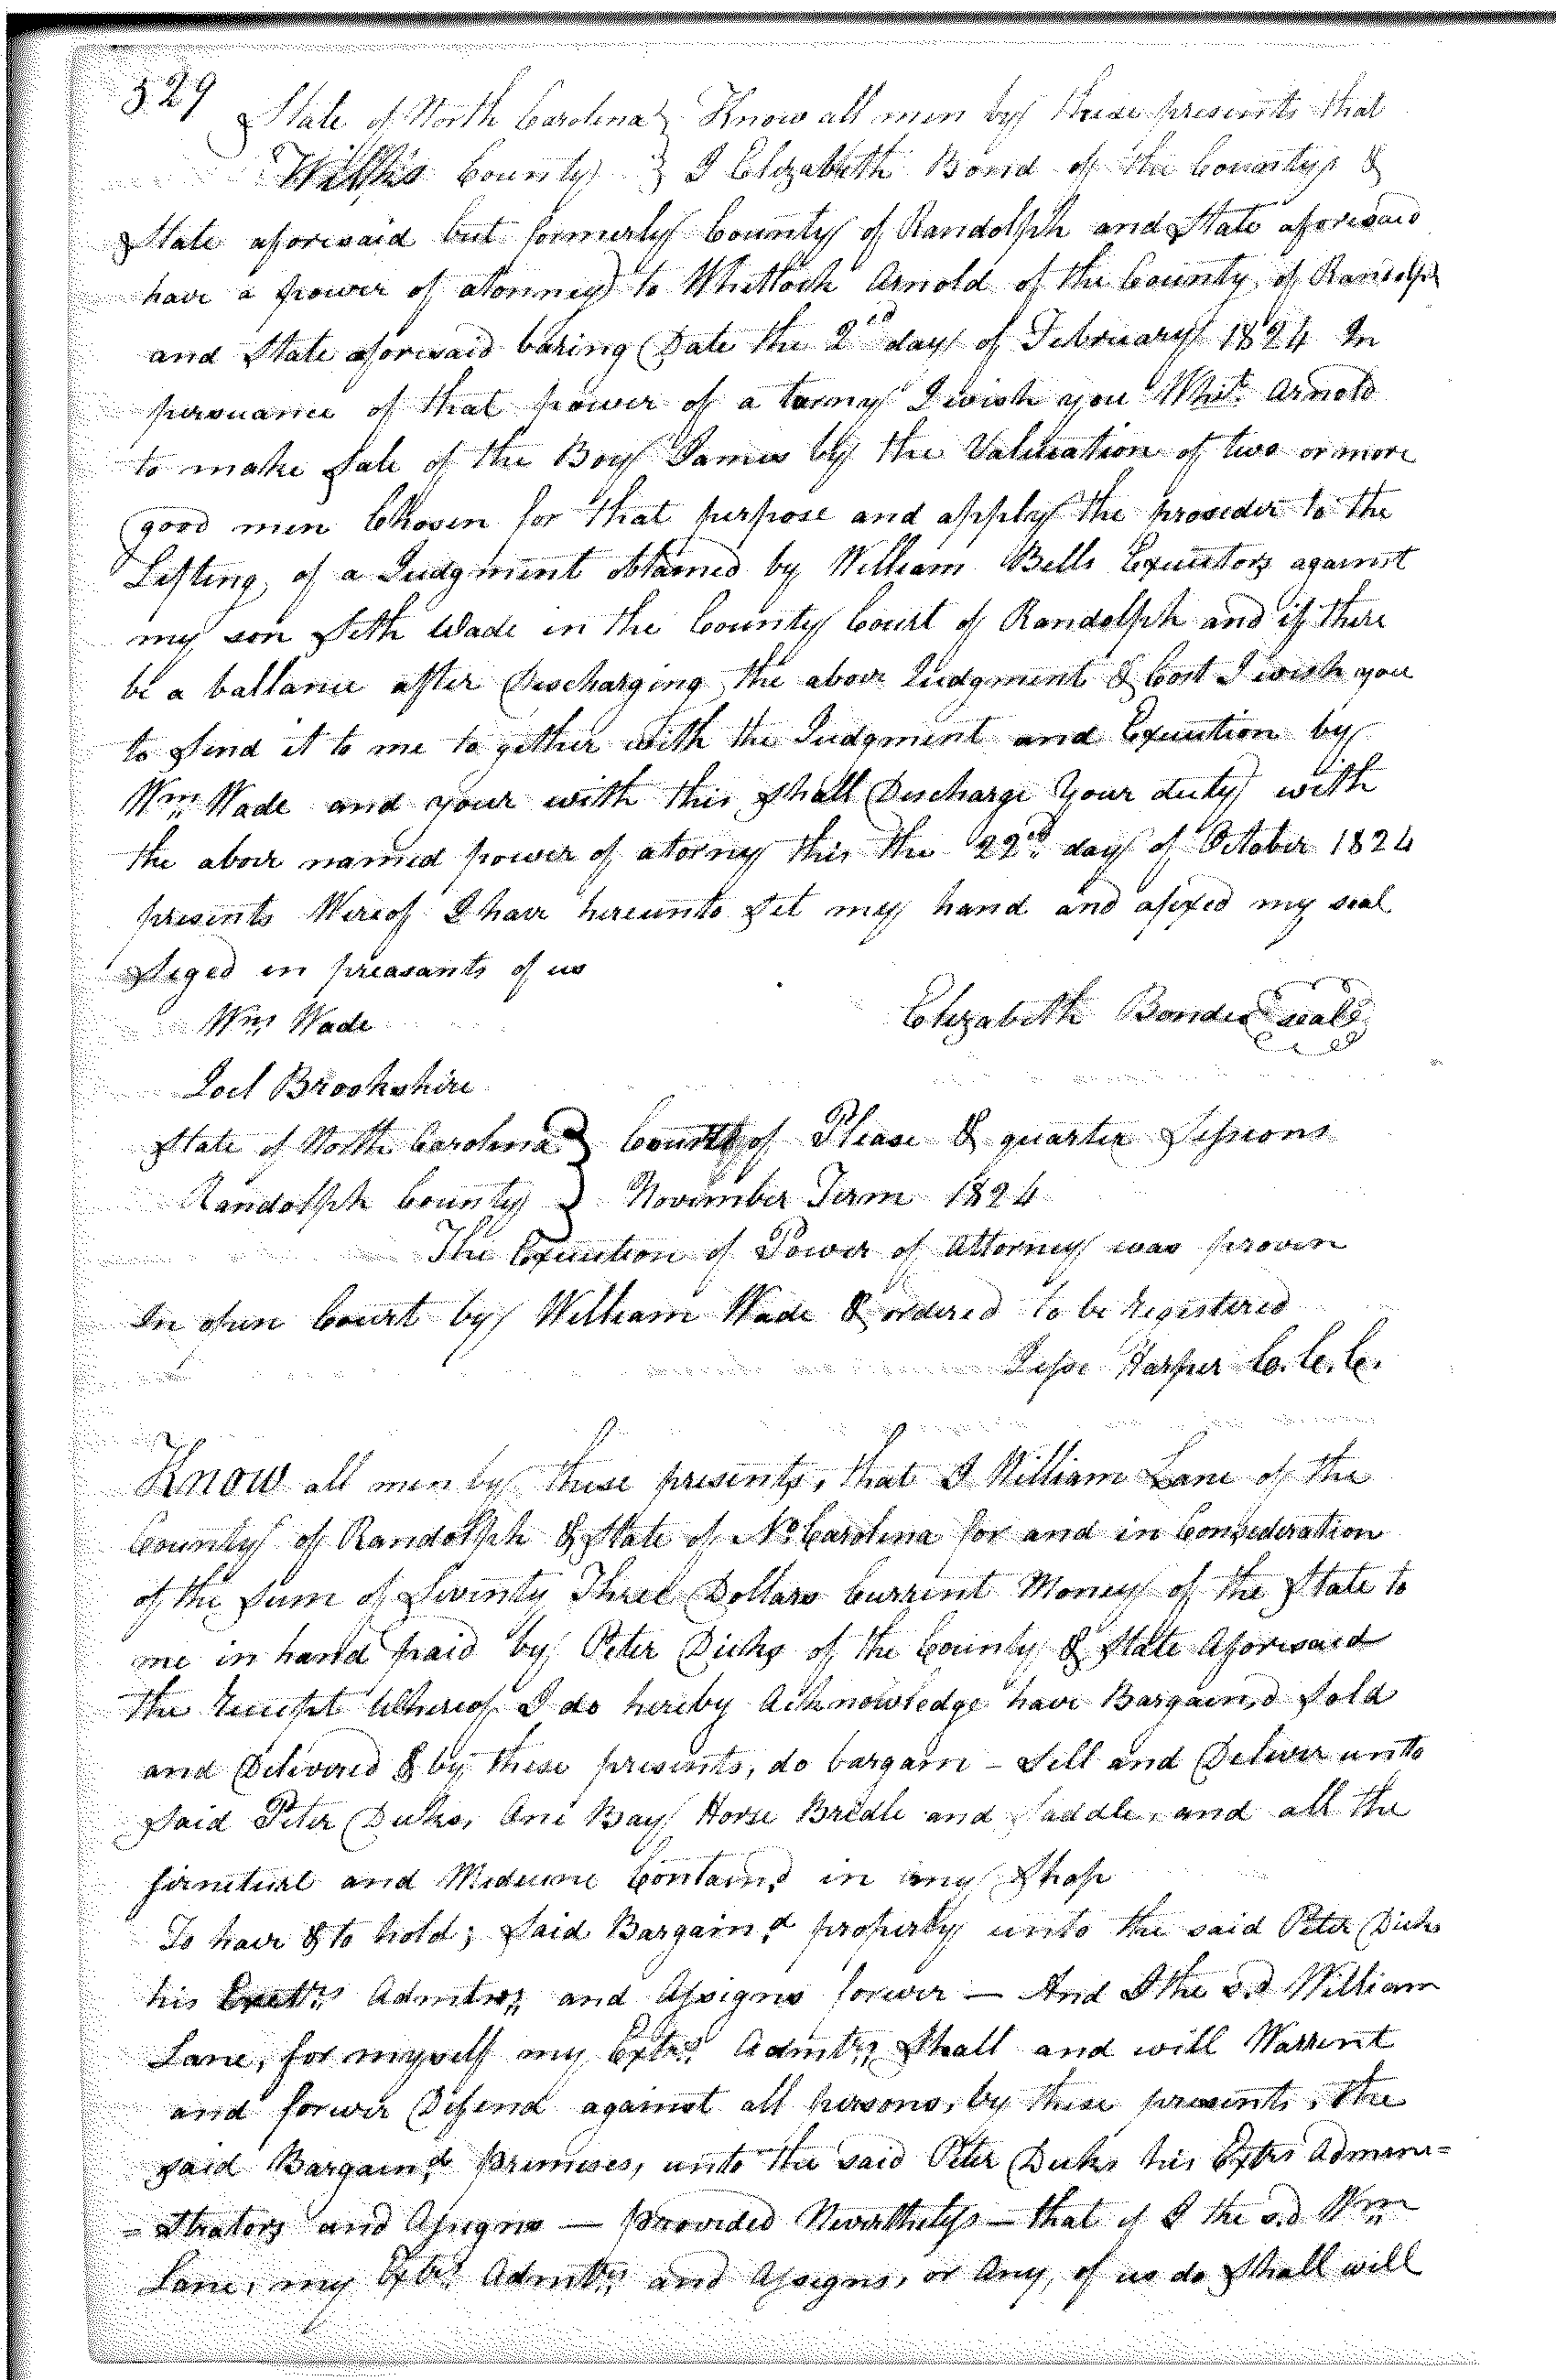 329
State of North Carolina } Know all men by these presents that
Willks County } I Elizabeth Bond of the County &
State aforesaid but formerly County of Randolph and State aforesaid
have a power of atonney to Whitlock Arnold of the County of Randolph
and State aforesaid baring Date the 2nd day of February 1824 In
persuance of that power of a torny I wish you Whit. Arnold
to make Sale of the Boy James by the Valueation of two or more
good men Chosen for that purpose and apply the proseder to the
Lifting of a Judgment obtained by William Bells Executors against
my son Seth Wade in the County Court of Randolph and if there
be a ballance after Discharging the above Judgment & Cost I wish you
to Send it to me to gether with the Judgment and Execution by
Wm Wade and your with this Shall Discharge Your duty with
the above named power of atorny this the 22nd day of October 1824
presents Wereof I have hereunto Set my hand and afixed my seal
Siged in preasants of us
Wm Wade
Elizabeth Bonder seal
Joel Brookshire
State of North Carolina } Court of Please & quarter Sessions
Randolph County } November Term 1824
The Execution of Power of Attorney was proven
In open Court by William Wade & ordered to be Registered
Jesse Harper C. C. C.
Know all men by these presents, that I William Lane of the
County of Randolph & State of No Carolina for and in Consederation
of the Sum of Seventy Three Dollars Current Money of the State to
me in hand paid by Peter Dicks of the County & State Aforesaid
the Receipt Whereof I do hereby Acknowledge have Bargain,d Sold
and Delivered & by these presents, do bargain - Sell and Deliver unto
Said Peter Dicks, One Bay Horse Bredle and Saddle, and all the
firniture and Medicine Contain,d in my Shop
To have & to hold; Said Bargain,d property unto the said Peter Dicks
his Exetrs Admtrs, and Assigns forever — And I the s.d William
Lane, for myself my Extrs Admtrs, Shall and will Warrent
and forever Defend against all persons, by these presents, the
said Bargain,d premises, unto the said Peter Dicks his Extrs Admini-
-strators and Assigns — provided Nevertheless — that if I the s.d Wm
Lane, my Extrs Admtrs and Assigns, or Any, of us do Shall will